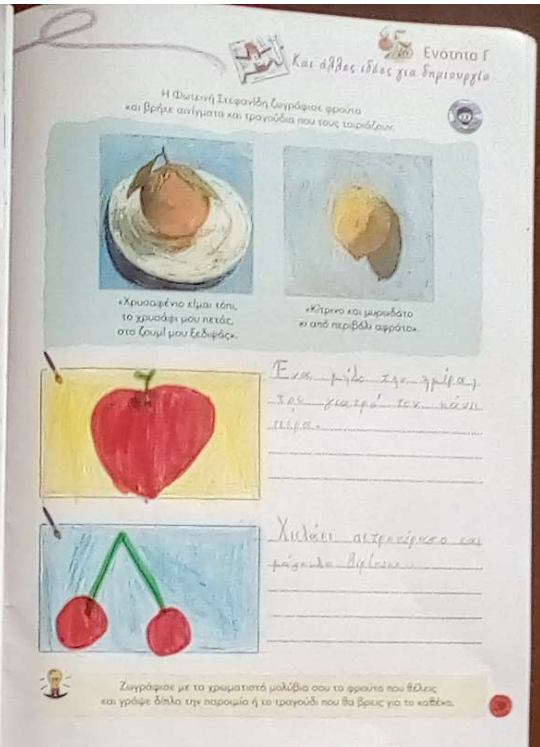 Ενότητα Γ
Και άλλες ιδέες για δημιουργία
Η Φωτεινή Στεφανίδη ζωγράφισε φρούτα
και βρήκε αινίγματα και τραγούδια που τους ταιριάζουν.
«Χρυσαφένιο είμαι τόπι,
το χρυσάφι μου πετάς,
στο ζουμί μου ξεδιψάς».
«Κίτρινο και μυρωδάτο
κι από περιβόλι αφράτο».
Ένα μήλο την ημέρα,
τον γιατρό τον κάνει
πέρα.
Χειλάκι πετροκέρασο και
μάγουλο
Ζωγράφισε με τα χρωματιστά μολύβια σου τα φρούτα που θέλεις
και γράψε δίπλα την παροιμία ή το τραγούδι που θα βρεις για το καθένα.